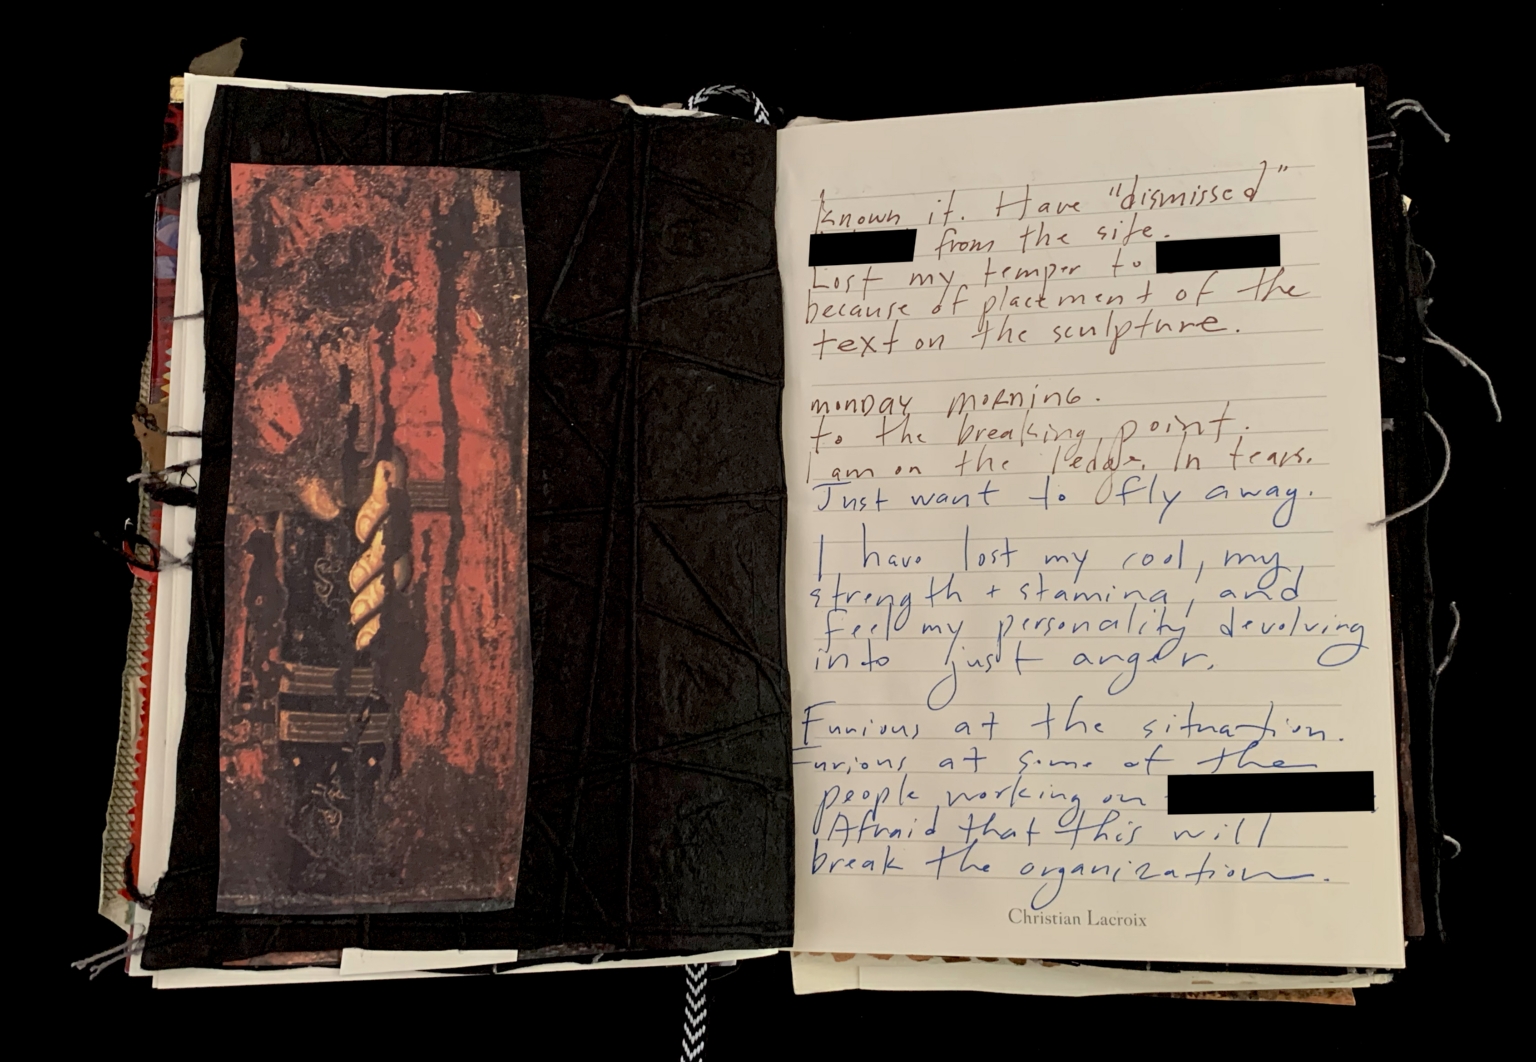 known it. Have "dismissed"
from the site.
Lost my temper to
because of placement of the
text on the sculpture.
MONDAY MORNING.
to the breaking point.
I am on the ledge. In tears.
Just want to fly away.
I have lost my cool, my
strength + stamina, and
feel my personality devolving
into just anger.
Furious at the situation.
Furious at some of the
people working on
Afraid that this will
break the organization.
Christian Lacroix